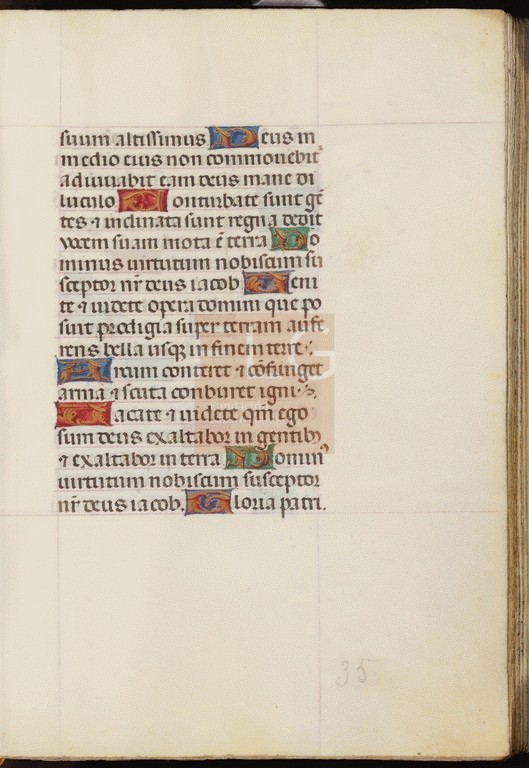 suum altissimus Deus in
medio eius non commouebit
adiuuabit eam deus mane di
luculo Conturbate sunt gẽ
tes ⁊ inclinata sunt regna dedit
vocem suam mota ẽ terra Do
minus uirtutum nobiscum su
sceptor nr̃ deus iacob Ueni
te ⁊ uidete opera domini que po
suit prodigia super terram aufe
rens bella usqꝫ in finem terre
Arcum conteret ⁊ cõfringet
arma ⁊ scuta comburet igni
Uacate ⁊ uidete qm̃ ego
sum deus exaltabor in gentibꝫ
⁊ exaltabor in terra Dominꝰ
uirtutum nobiscum susceptor
nr̃ deus iacob. Gloria patri.
35